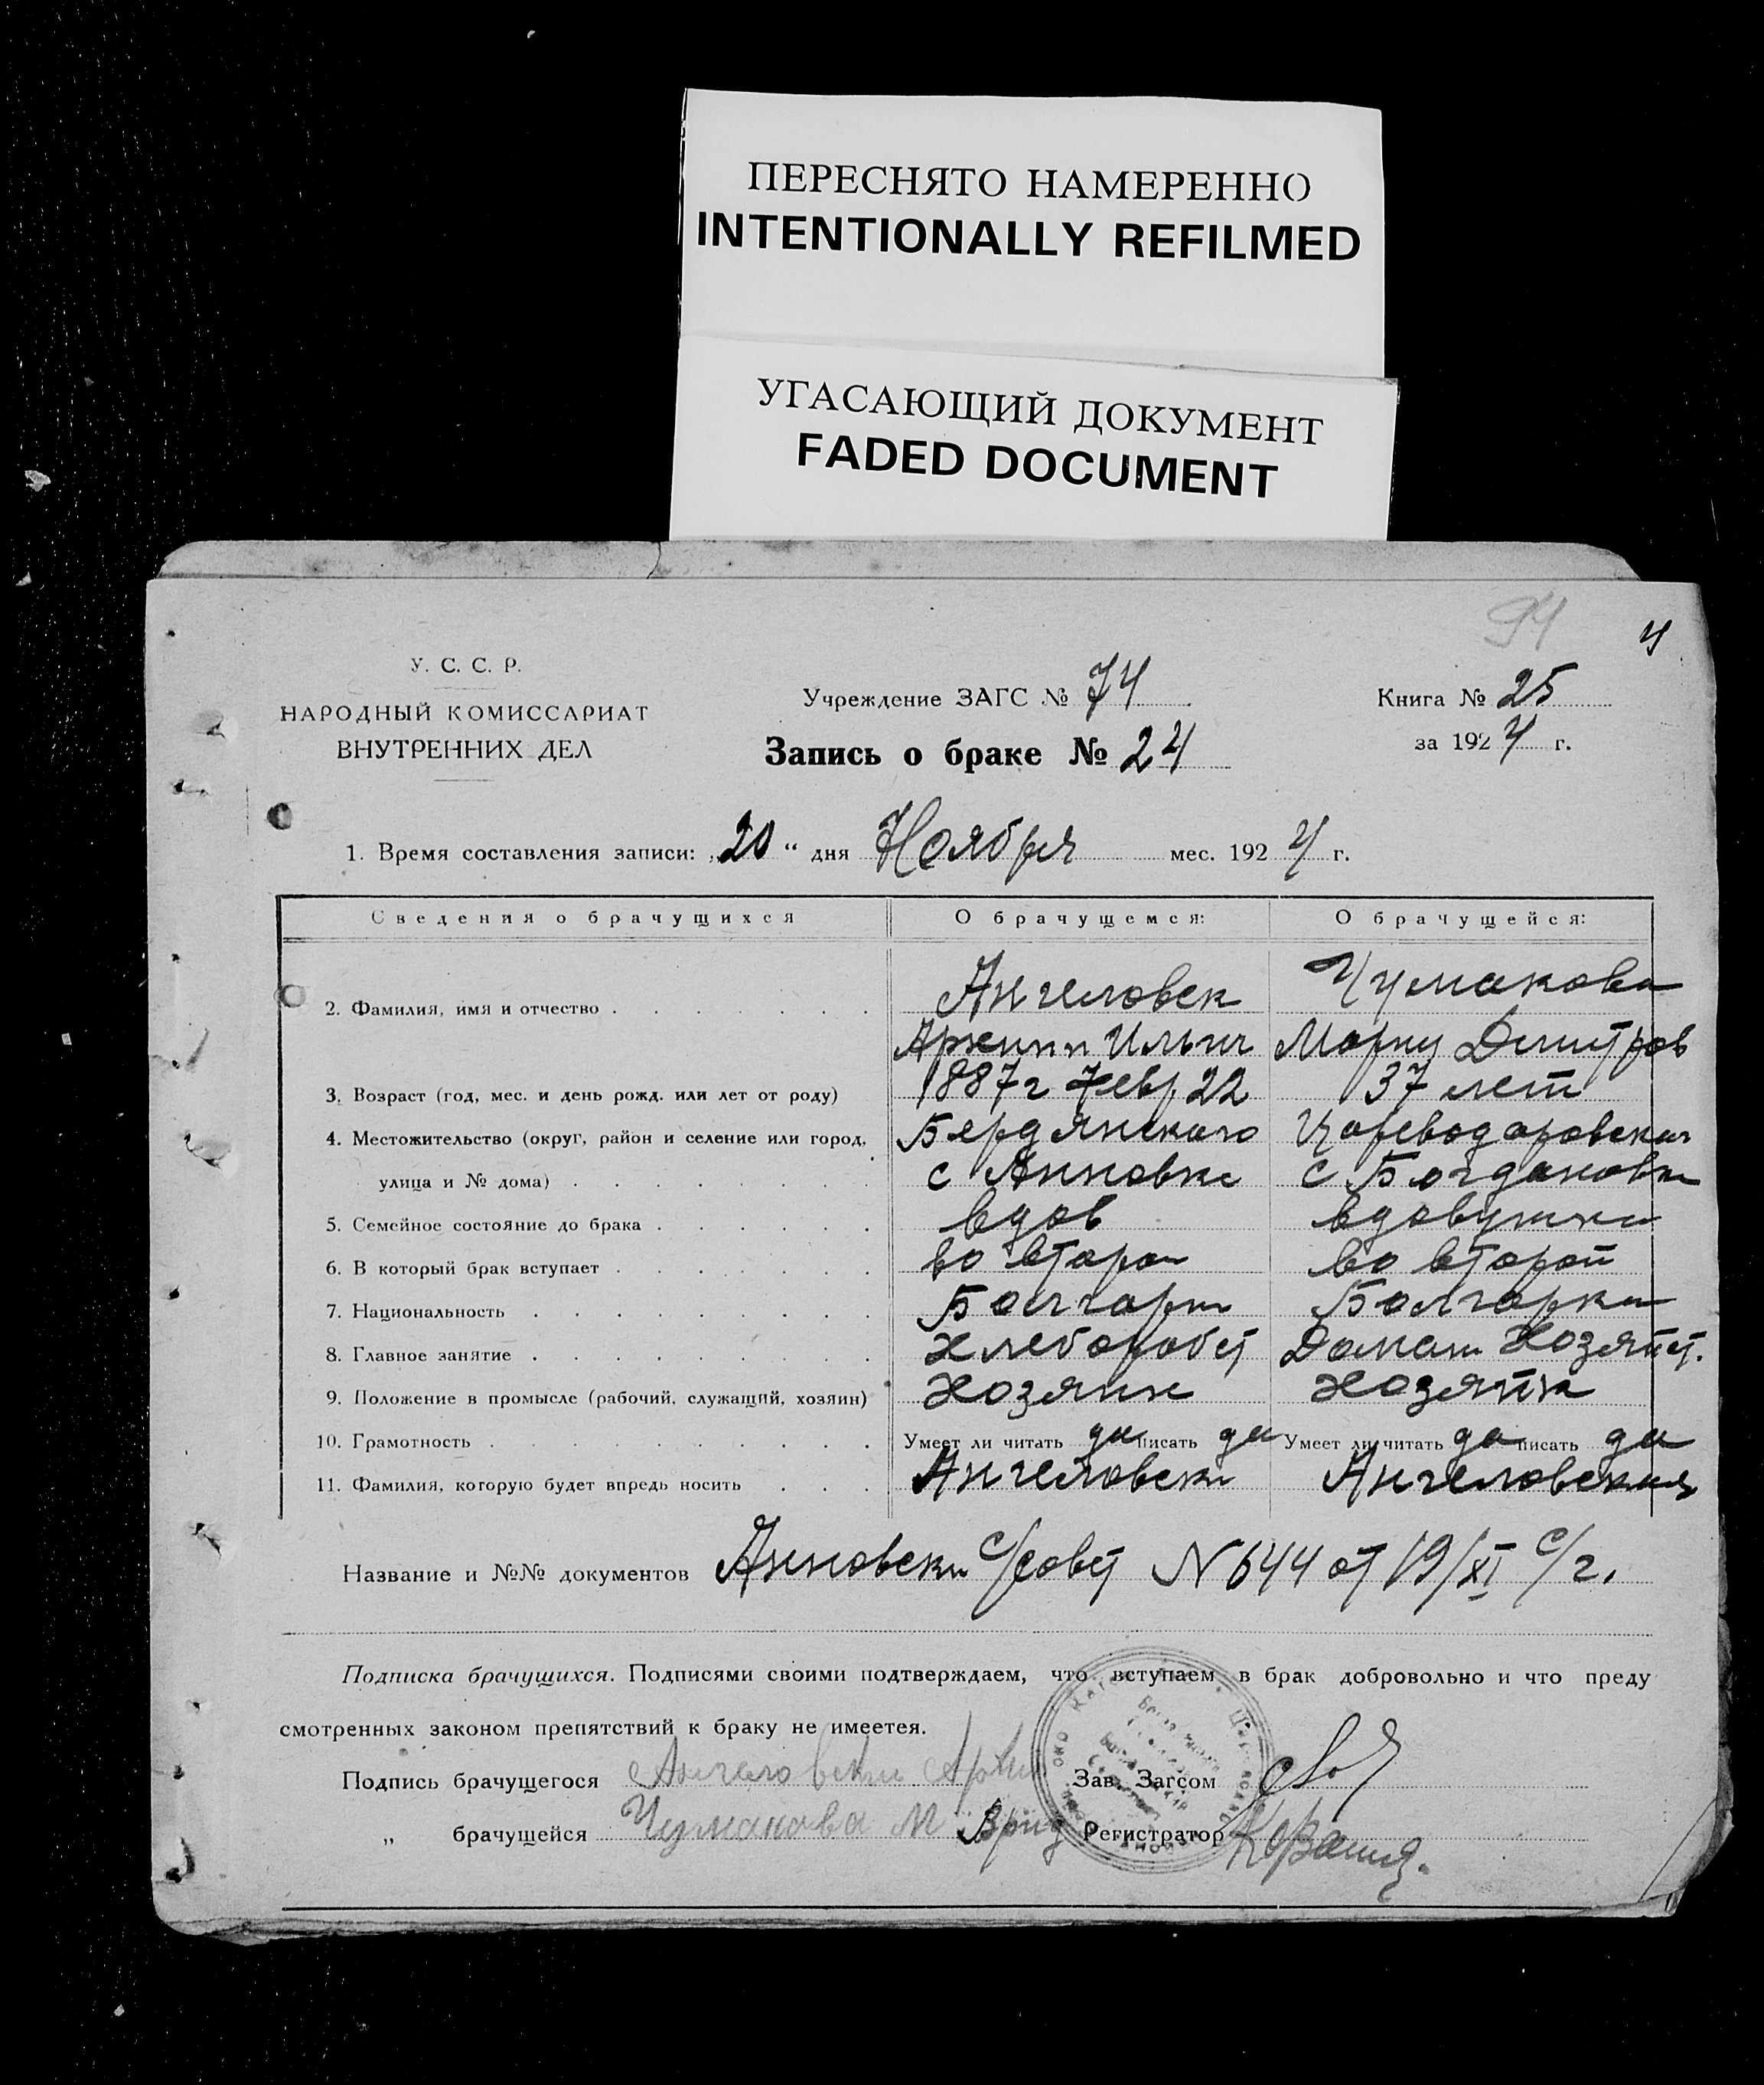 ПЕРЕСНЯТО НАМЕРЕННО
INTENTIONALLY REFILMED
УГАСАЮЩИЙ ДОКУМЕНТ
FADED DOCUMENT
94 4
У. С. С. Р.
НАРОДНЫЙ КОМИССАРИАТ
ВНУТРЕННИХ ДЕЛ
Учреждение ЗАГС № 74
Запись о браке № 24
Книга № 25
за 1924 г.
1. Время составления записи: „20“ дня Ноября мес. 1924 г.
Сведения о брачущихся О брачущемся: О брачущейся:
2. Фамилия, имя и отчество Ангеловск Чумакова
Архипп Ильич Марию Дмитров
3. Возраст (год, мес. и день рожд. или лет от роду) 1887 г Февр 22 37 лет
4. Местожительство (округ, район и селение или город, Бердянского Цареводаровская
улица и № дома) с Анновке с Богдановка
5. Семейное состояние до брака вдов вдовушка
6. В который брак вступает во второй во второй
7. Национальность Болгарин Болгарка
8. Главное занятие Хлеборобст Домаш Хозяйст.
9. Положение в промысле (рабочий, служащий, хозяин) Хозяин Хозяйк
10. Грамотность Умеет ли читать да писать да Умеет ли читать да писать да
11. Фамилия, которую будет впредь носить Ангеловски Ангеловская
Название и №№ документов Анновски с/совет N 644 от 19/XI с/г.
Подписка брачущихся. Подписями своими подтверждаем, что вступаем в брак добровольно и что преду
смотренных законом препятствий к браку не имеетея.
Подпись брачущегося Ангеловски Архип Зав. Загсом
„ брачущейся Чумакова М Врид Регистратор